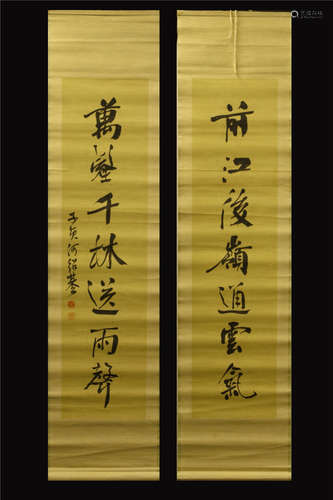 前江後嶺通雲氣
萬壑千林送雨聲
子貞何紹基